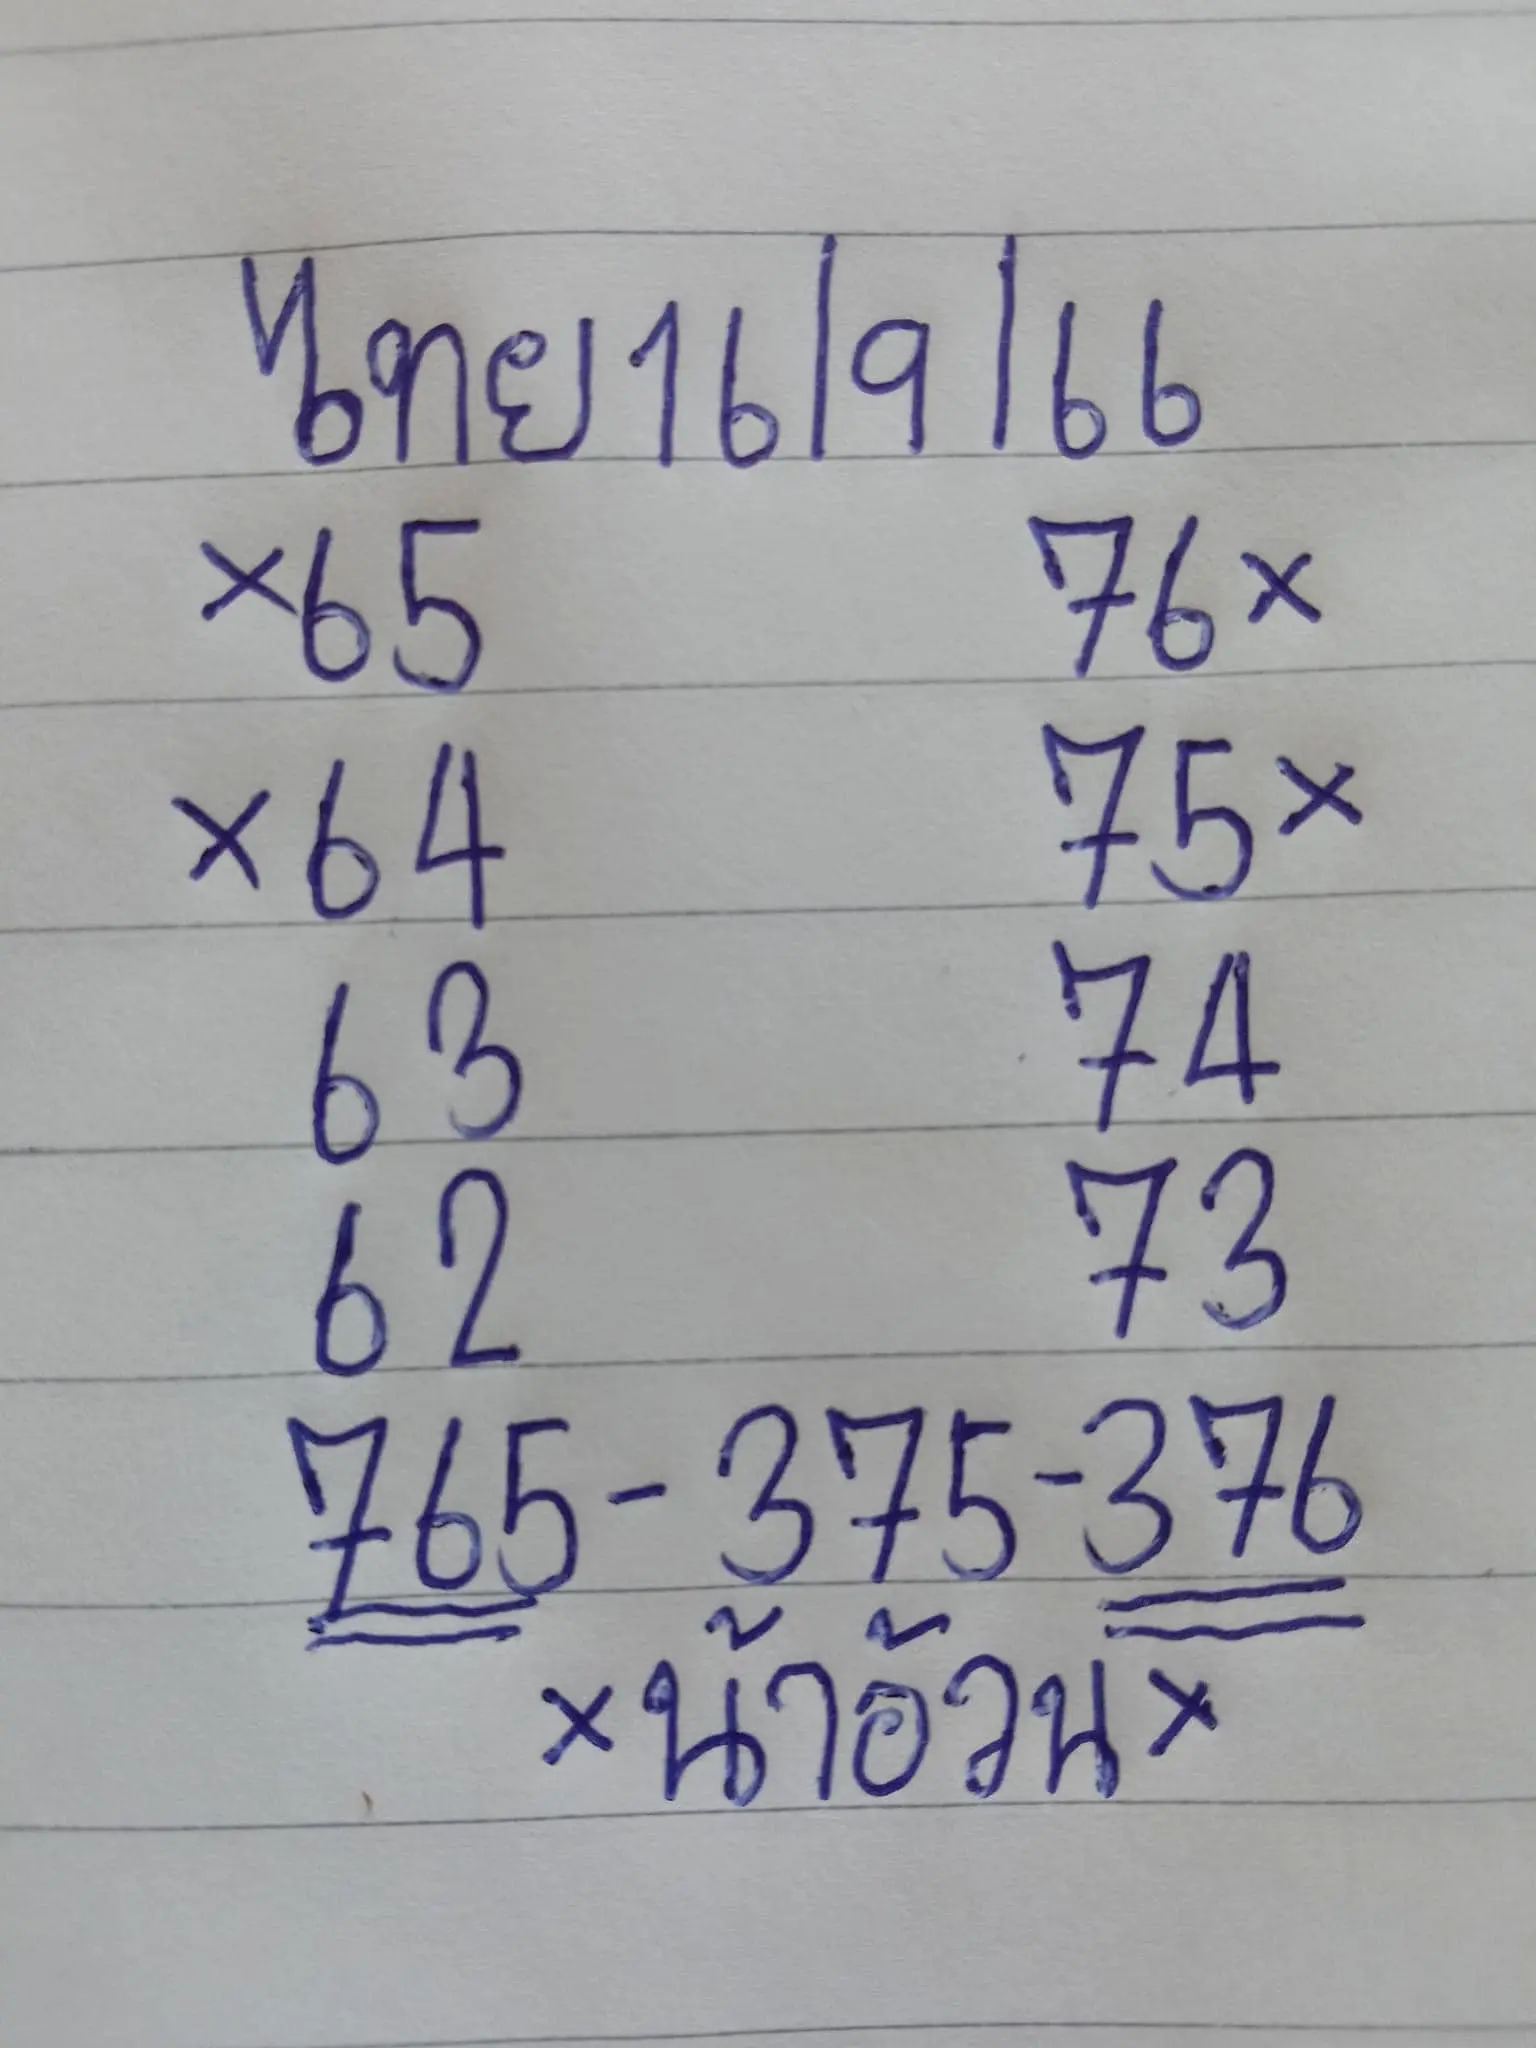 ไทย 16/9/66
×65 76×
×64 75×
63 74
62 73
765-375-376
×น้าอ้วน×